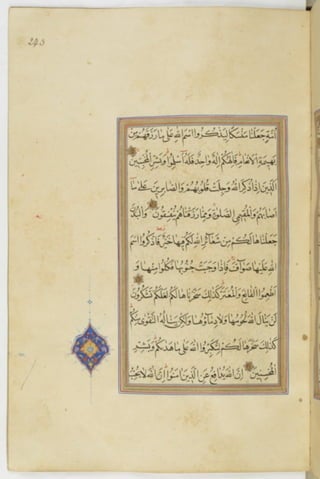 243
أمة جعلنا منسكا ليذكروا اسم الله على ما رزقهم من
بهيمة الانعام فالهكم اله واحد فله أسلموا وبشر المخبتين
الذين إذا ذكر الله وجلت قلوبهم والصابرين على ما
أصابهم والمقيمي الصلوة ومما رزقناهم ينفقون والبدن
جعلناها لكم من شعائر الله لكم فيها خير فاذكروا اسم
الله عليها صواف فإذا وجبت جنوبها فكلوا منها و
اطعموا القانع والمعتر كذلك سخرناها لكم لعلكم تشكرون
لن ينال الله لحومها ولا دماؤها ولكن يناله التقوى منكم
كذلك سخرها لكم لتكبروا الله على ما هدىكم وبشر
المحسنين إن الله يدافع عن الذين امنوا إن الله لا يحب